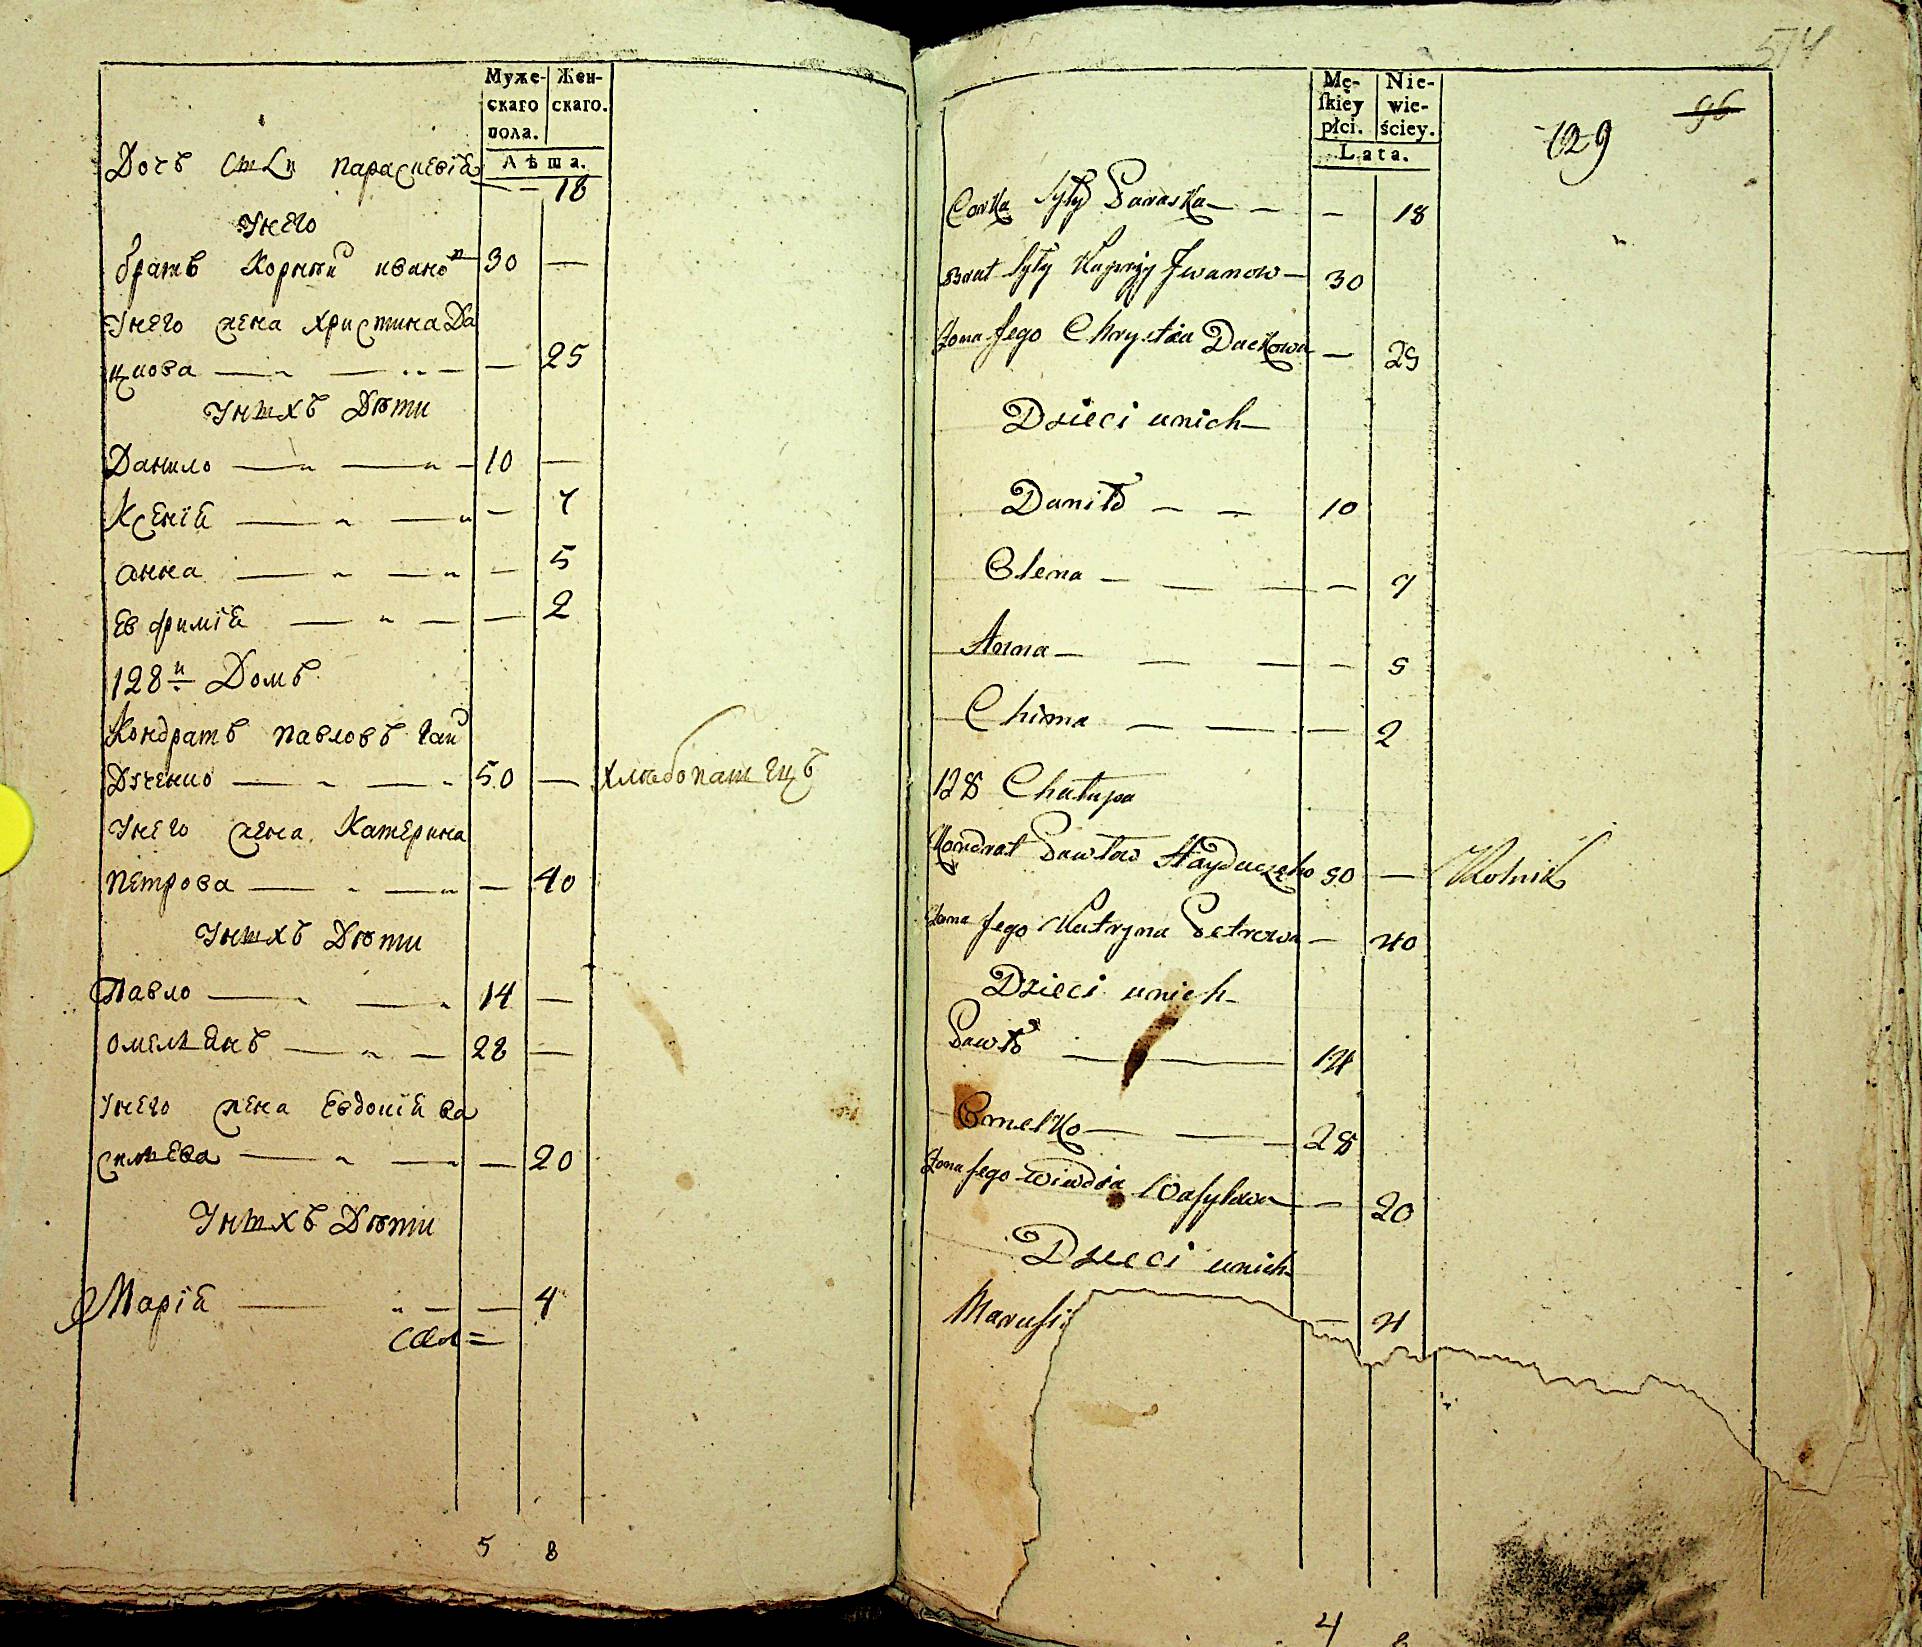 Муже-
скаго
пола.
Жен-
скаго.
Лѣта.
Дочъ Параскевія — 18
Унего
братъ Корнѣй ивановъ 30 —
Унего жена христина Да
цкова — — 25
Унихъ Дѣти
Данило — 10 —
Ксенія — — 7
анна — — 5
Евфимія — — 2
128й Домъ
Кондратъ Павловъ Гай
Дученко — 50 — хлѣбопашецъ
Унего жена Катерина
Петрова — — 40
Унихъ Дѣти
Павло — 14 —
омельянъ — 28 —
Унего жена Евдокія Ва
сильева — — 20
Унихъ Дѣти
Марія — — 4
5 8
574
Mę-
ſkiéy
płci.
Nie-
wie-
ściey.
Lata.
96
129
Corka Syły Paraska — — 18
Brat Syły Iwanow — 30
Zona Jego Chrystia Dackowa — 25
Dzieci unich
Daniło — — 10
Olena — — 7
Anna — — 5
Chima — — 2
128 Chałupa
Kondrat Pawłow Hayduczęko 50 — Rolnik
Zona Jego Katryna Petrowa — 40
Dzieci unich
Pawło — 14
Omelko — 28
Zona Jego Wiwdia Wasylowa — 20
Dzieci unich
Marusi — 4
4 8